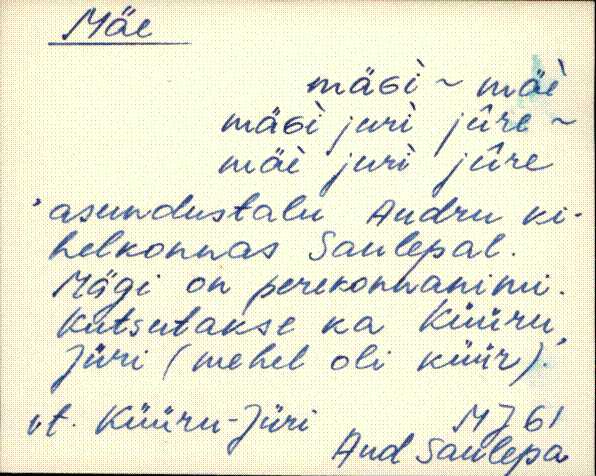 Mäe
mäGì ~ mäè
mäGì jurì jûre ~
mäè jurì jûre
'asundustalu Audru ki-
helkonnas Saulepal.
Mägi on perekonnanimi.
Kutsutakse ka Küüru
Jüri (mehel oli küür).'
vt. Küüru-Jüri MJ 61
Aud Saulepa